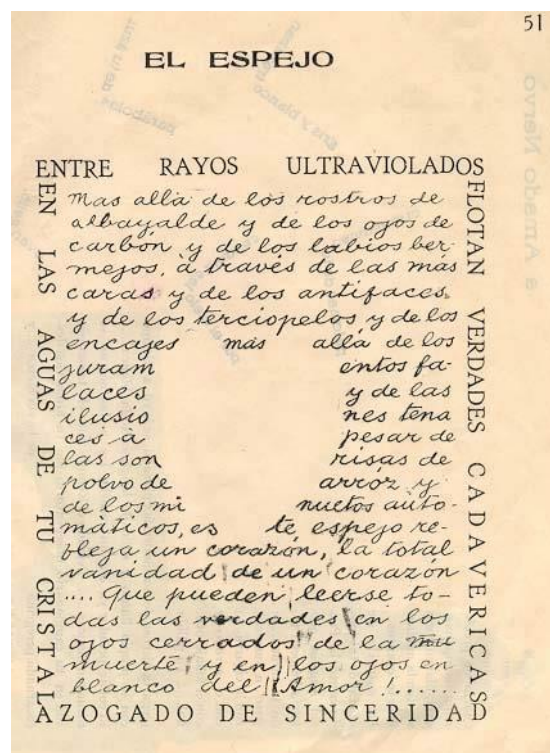 51
EL ESPEJO
ENTRE RAYOS ULTRAVIOLADOS
FLOTAN VERDADES CADAVERICAS
EN LAS AGUAS DE TU CRISTAL
AZOGADO DE SINCERIDAD
Mas allá de los rostros de
albayalde y de los ojos de
carbón y de los labios ber-
mejos, à través de las más
caras y de los antifaces
y de los terciopelos y de los
encajes más allá de los
juram entos fa-
laces y de las
ilusio nes tena
ces à pesar de
las son risas de
polvo de arróz y
de los mi nuetos auto-
máticos, es te espejo re-
fleja un corazón, la total
vanidad de un corazón
.... que pueden leerse to-
das las verdades en los
ojos cerrados de la mu
muerte y en los ojos en
blanco del Amor !......
a Amado Nervo
gris y blanco
parábolas